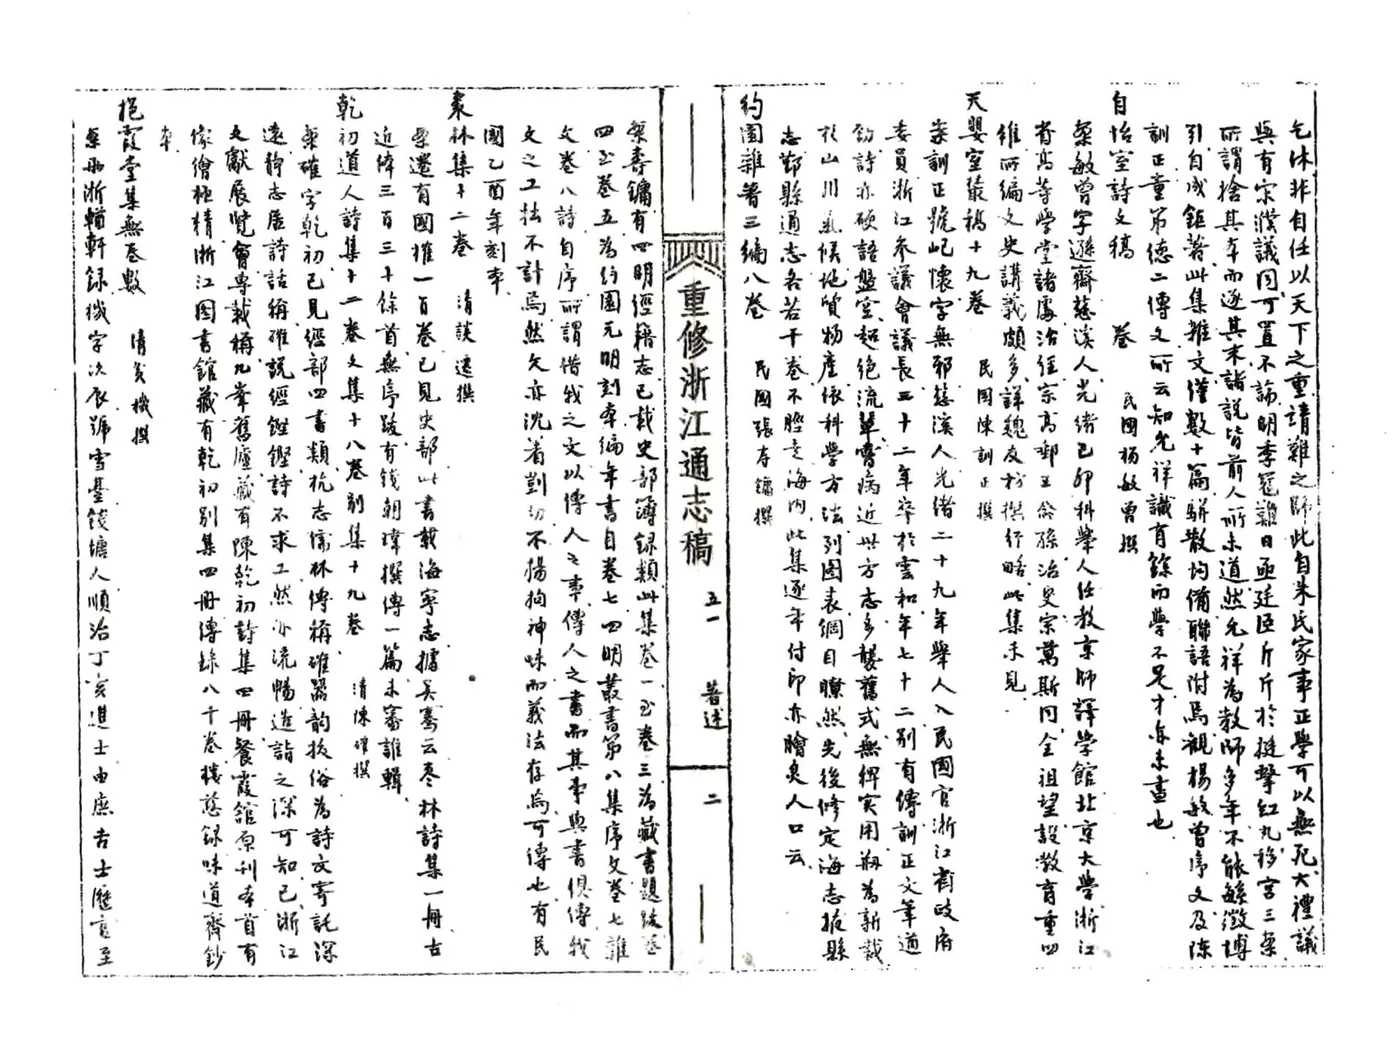 乞休非自任以天下之重請難之師此自朱氏家事正學可以無死大禮議
與有宋濮議同可置不論明季冦難日亟廷臣斤斤於挺擊紅丸移宮三案
所謂捨其本而逐其末諸說皆前人所未道然允祥為教師多年不能緜徵博
引自成鉅著此集雜文僅數十篇駢散均備聯語附焉觀楊敏曾序文及陳
訓正童第德二傳文所云知允祥識有餘而學不足才亦未盡也
自怡室詩文稿 卷 民國楊敏曾撰
案敏曾字遜齋慈溪人光緒己卯科舉人任教京師譯學館北京大學浙江
省高等學堂諸處治經宗高郵王爺孫治史宗萬斯同全祖望設教育重四
維所編文史講義頗多詳魏友枋撰行略此集未見
天嬰室叢稿十九卷 民國陳訓正撰
案訓正號屺懷字無邪慈溪人光緒二十九年舉人入民國官浙江省政府
委員浙江參議會議長三十二年卒於雲和年七十二別有傳訓正文筆遒
勁詩亦硬語盤空超絕流輩嘗病近世方志多襲舊式無裨實用剏為新裁
於山川氣候地質物產依科學方法列圖表綱目瞭然先後修定海志掖縣
志鄞縣通志各若干卷不脛走海內此集逐年付印亦膾炙人口云
約園雜著三編八卷 民國張壽鏞撰
重修浙江通志稿 五一 著述 二
案壽鏞有四明經籍志已載史部簿録類此集卷一至卷三為藏書題跋卷
四至卷五為約園元明刻本編年書目卷七四明叢書第八集序文卷七雜
文卷八詩自序所謂借我之文以傳人之事傳人之書而其事與書俱傳我
文之工拙不計焉然文亦沈着剴切不揚拘神味而義法存焉可傳也有民
國乙酉年刻本
棗林集十二卷 清談遷撰
案遷有國榷一百卷已見史部此書載海寧志據吳騫云棗林詩集一冊古
近體三百三十餘首無序跋有錢朝瑋撰傳一篇未審誰輯
乾初道人詩集十二卷文集十八卷別集十九卷 清陳確撰
案確字乾初已見經部四書類杭志儒林傳稱確器韵拔俗為詩文寄託深
遠靜志居詩話稱確說經鏗鏗詩不求工然亦流暢造詣之深可知已浙江
文獻展覽會專載稱九峯舊廬藏有陳乾初詩集四冊餐霞館原刊本首有
像繪極精浙江圖書館藏有乾初別集四冊傳錄八千卷樓慈録味道齋鈔
本
挹霞堂集無卷數 清奚機撰
案兩浙輶軒録機字次辰號雪臺錢塘人順治丁亥進士由庶吉士歷官至